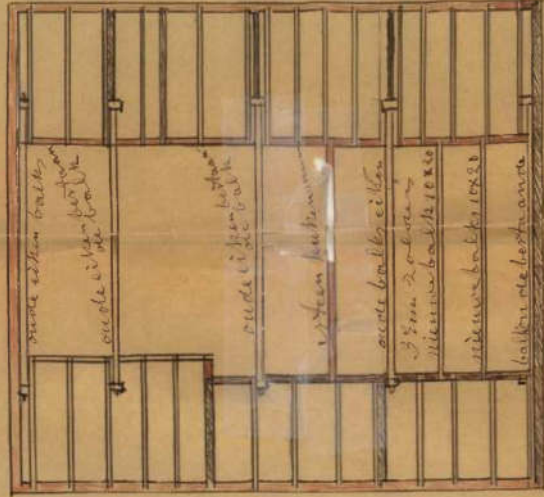 oude eiken balk
oude eiken bestaan
de balk
oude eiken bestaan
de balk
steen
oude balk eiken
nieuwe balk 10x20
nieuwe balk 10x20
balk oude bestaande